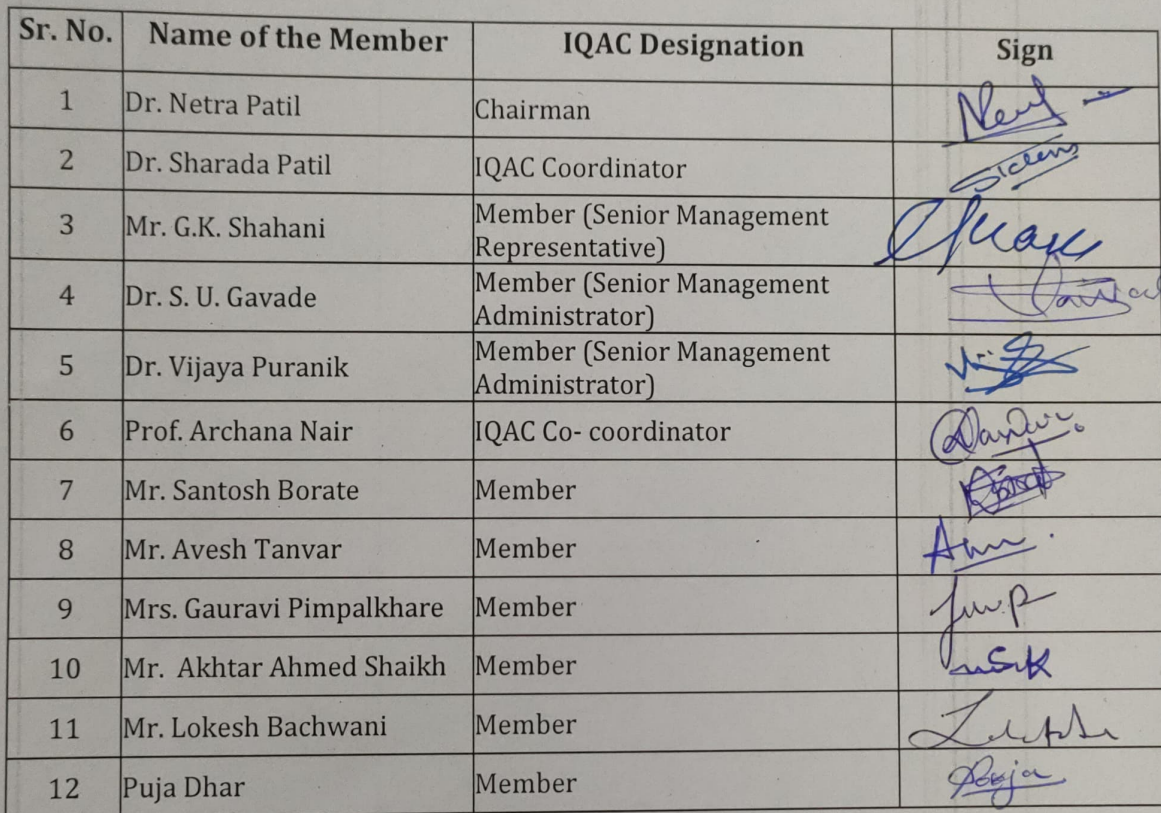 Sr. No. Name of the Member IQAC Designation Sign
1 Dr. Netra Patil Chairman
2 Dr. Sharada Patil IQAC Coordinator
3 Mr. G.K. Shahani Member (Senior Management
Representative)
4 Dr. S. U. Gavade Member (Senior Management
Administrator)
5 Dr. Vijaya Puranik Member (Senior Management
Administrator)
6 Prof. Archana Nair IQAC Co- coordinator
7 Mr. Santosh Borate Member
8 Mr. Avesh Tanvar Member
9 Mrs. Gauravi Pimpalkhare Member
10 Mr. Akhtar Ahmed Shaikh Member
11 Mr. Lokesh Bachwani Member
12 Puja Dhar Member